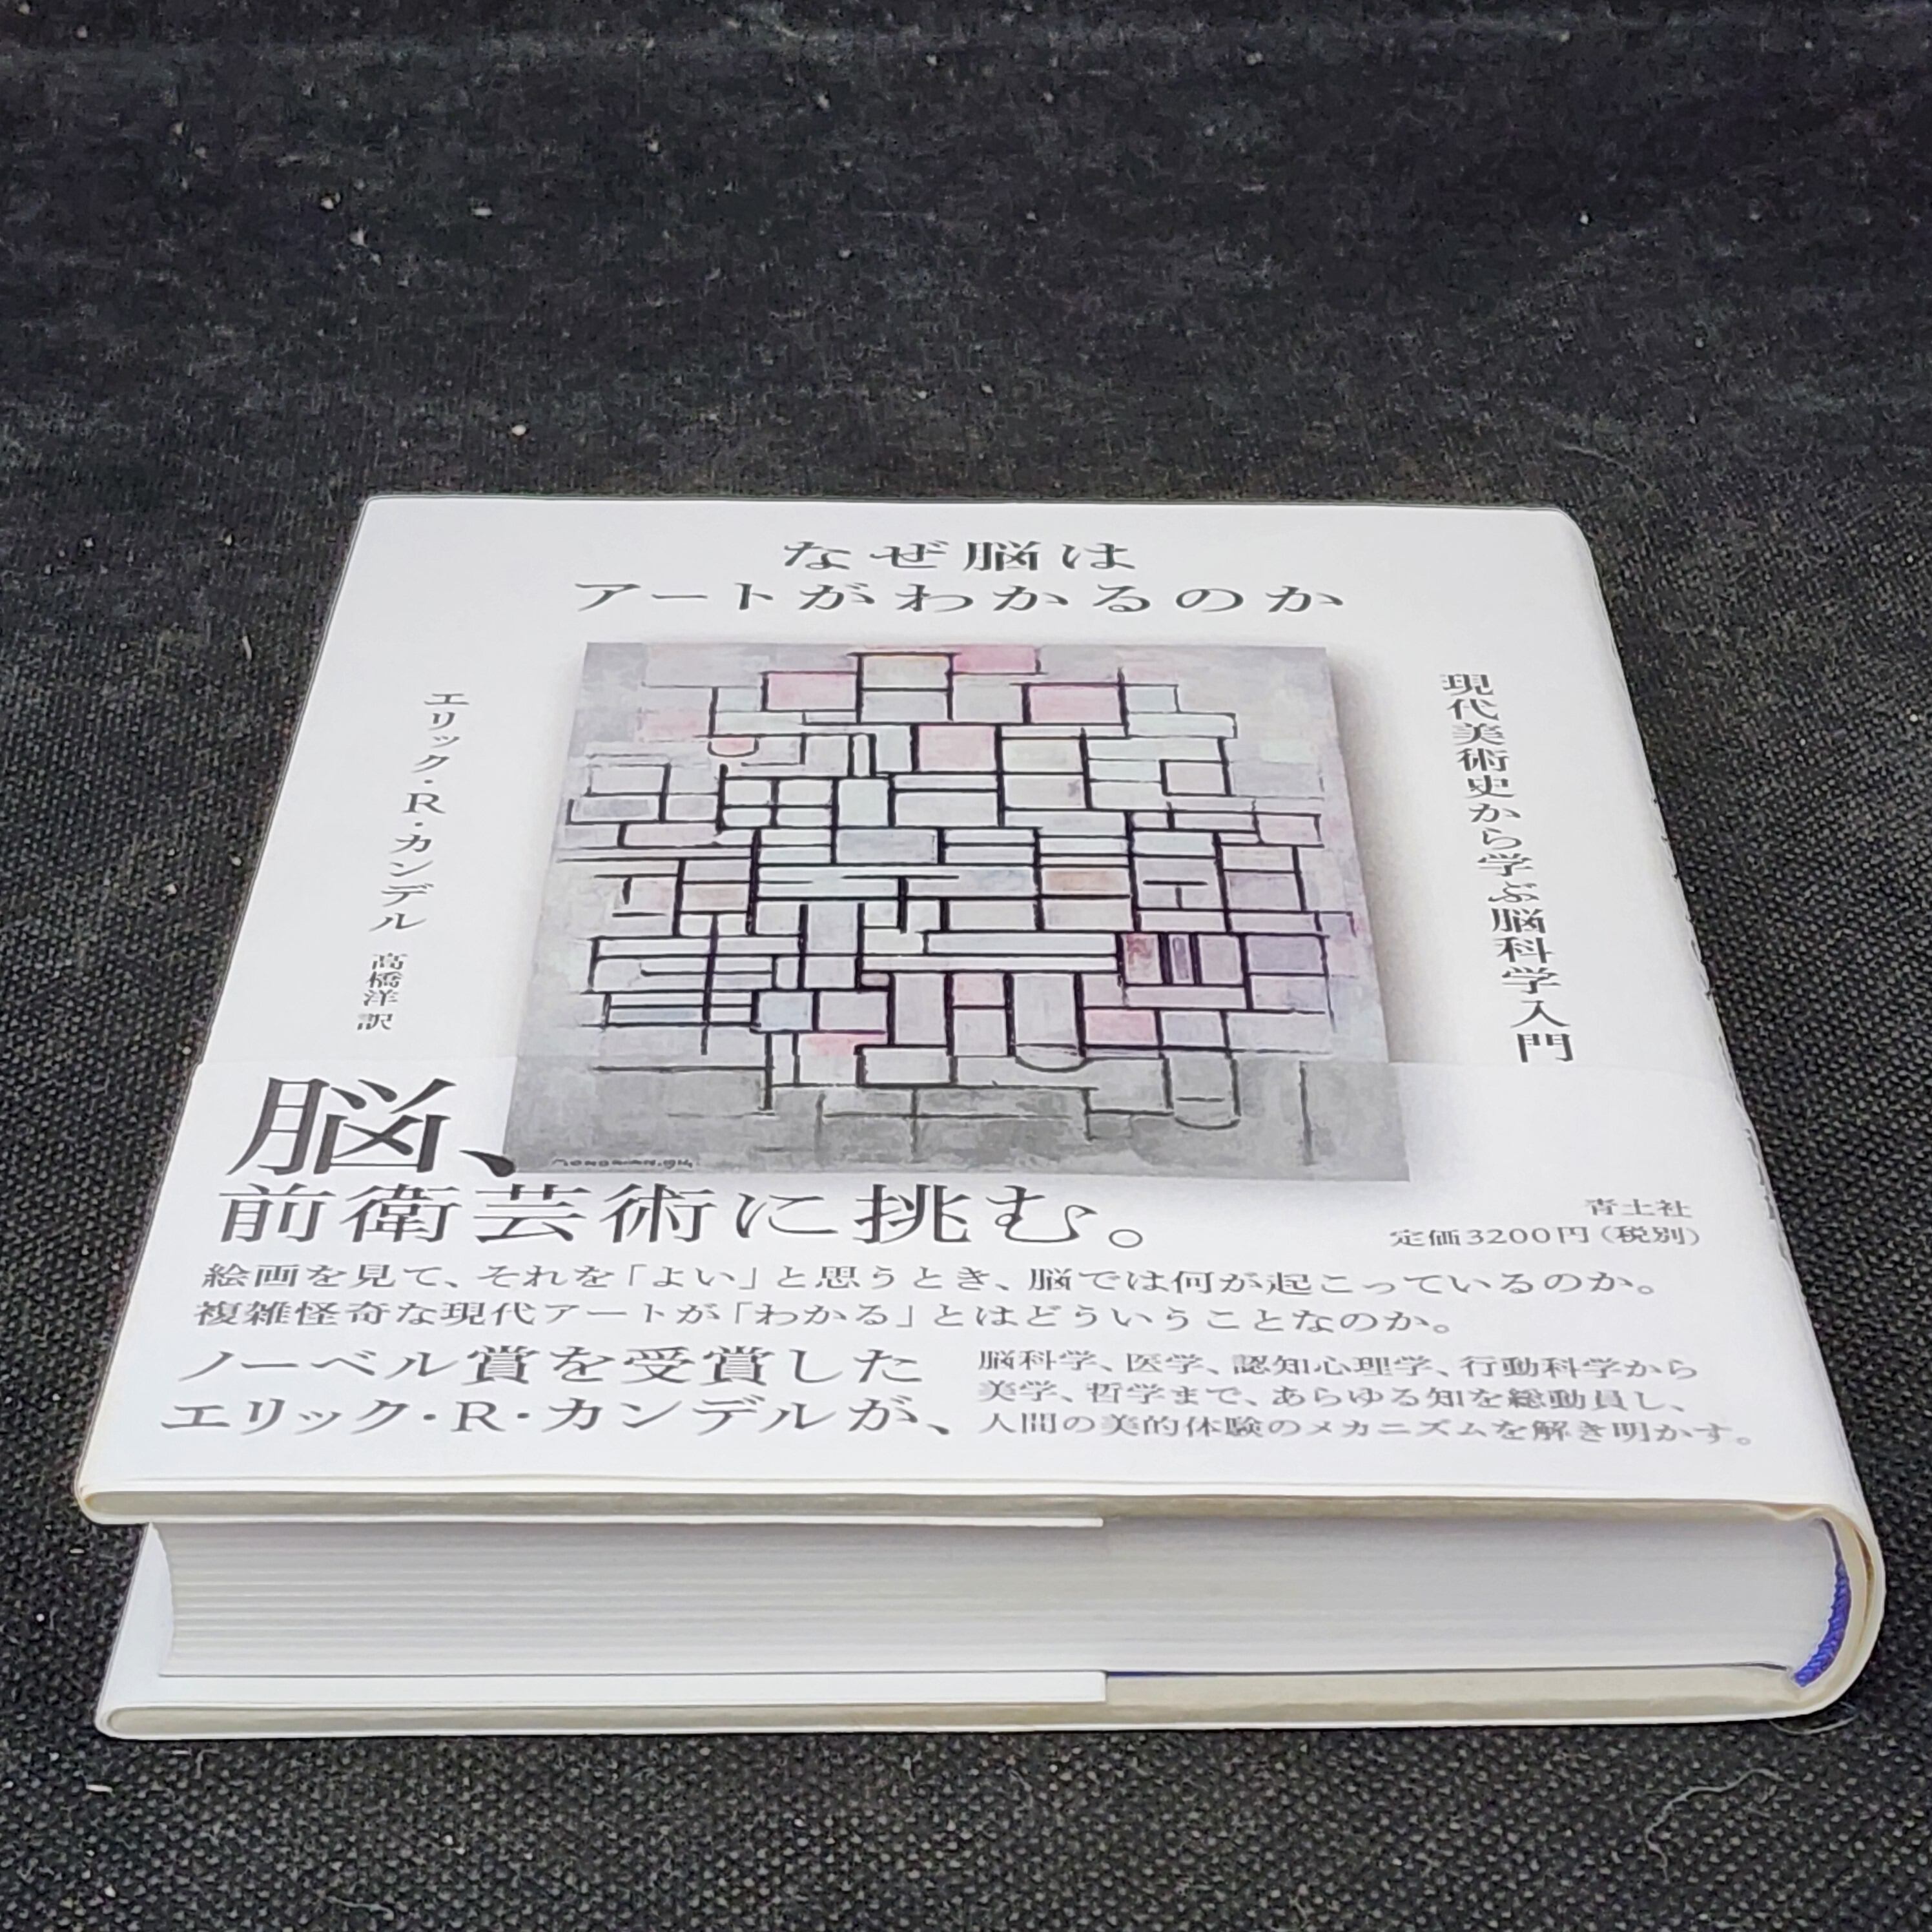 なぜ脳は
アートがわかるのか
現代美術史から学ぶ脳科学入門
エリック・R・カンデル
髙橋洋 訳
脳、
前衛芸術に挑む。
青土社
定価3200円（税別）
絵画を見て、それを「よい」と思うとき、脳では何が起こっているのか。
複雑怪奇な現代アートが「わかる」とはどういうことなのか。
ノーベル賞を受賞した
エリック・R・カンデルが、
脳科学、医学、認知心理学、行動科学から
美学、哲学まで、あらゆる知を総動員し、
人間の美的体験のメカニズムを解き明かす。